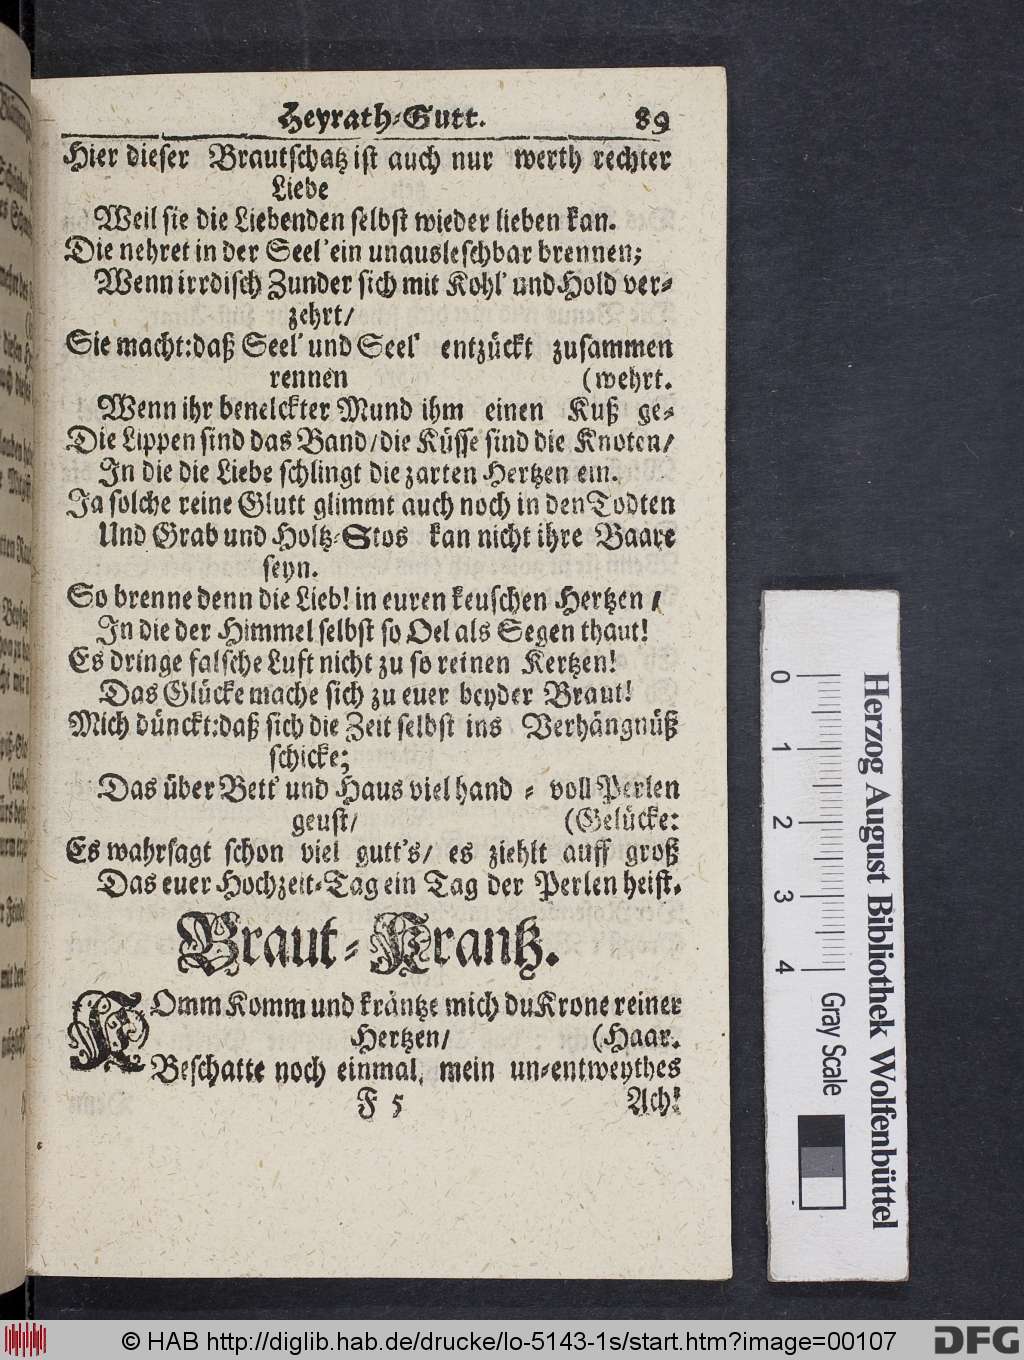 Heyrath-Gutt. 89
Hier dieser Brautschatz ist auch nur werth rechter
Liebe
Weil sie die Liebenden selbst wieder lieben kan.
Die nehret in der Seel' ein unausleschbar brennen;
Wenn irrdisch Zunder sich mit Kohl' und Hold ver-
zehrt/
Sie macht: daß Seel' und Seel' entzückt zusammen
rennen (wehrt.
Wenn ihr benelckter Mund ihm einen Kuß ge-
Die Lippen sind das Band/ die Küsse sind die Knoten/
In die die Liebe schlingt die zarten Hertzen ein.
Ja solche reine Glutt glimmt auch noch in den Todten
Und Grab und Holtz-Stos kan nicht ihre Baare
seyn.
So brenne denn die Lieb! in euren keuschen Hertzen /
In die der Himmel selbst so Oel als Segen thaut!
Es dringe falsche Luft nicht zu so reinen Kertzen!
Das Glücke mache sich zu euer beyder Braut!
Mich dünckt: daß sich die Zeit selbst ins Verhängnüß
schicke;
Das über Bett' und Haus viel hand - voll Perlen
geust/ (Gelücke:
Es wahrsagt schon viel gutt's/ es ziehlt auff groß
Das euer Hochzeit-Tag ein Tag der Perlen heist.
Braut-Krantz.
KOmm Komm und kräntze mich du Krone reiner
Hertzen/ (Haar.
Beschatte noch einmal, mein un-entweyhes
F 5 Ach!
0 1 2 3 4
Herzog August Bibliothek Wolfenbüttel
Gray Scale
© HAB http://diglib.hab.de/drucke/lo-5143-1s/start.htm?image=00107
DFG